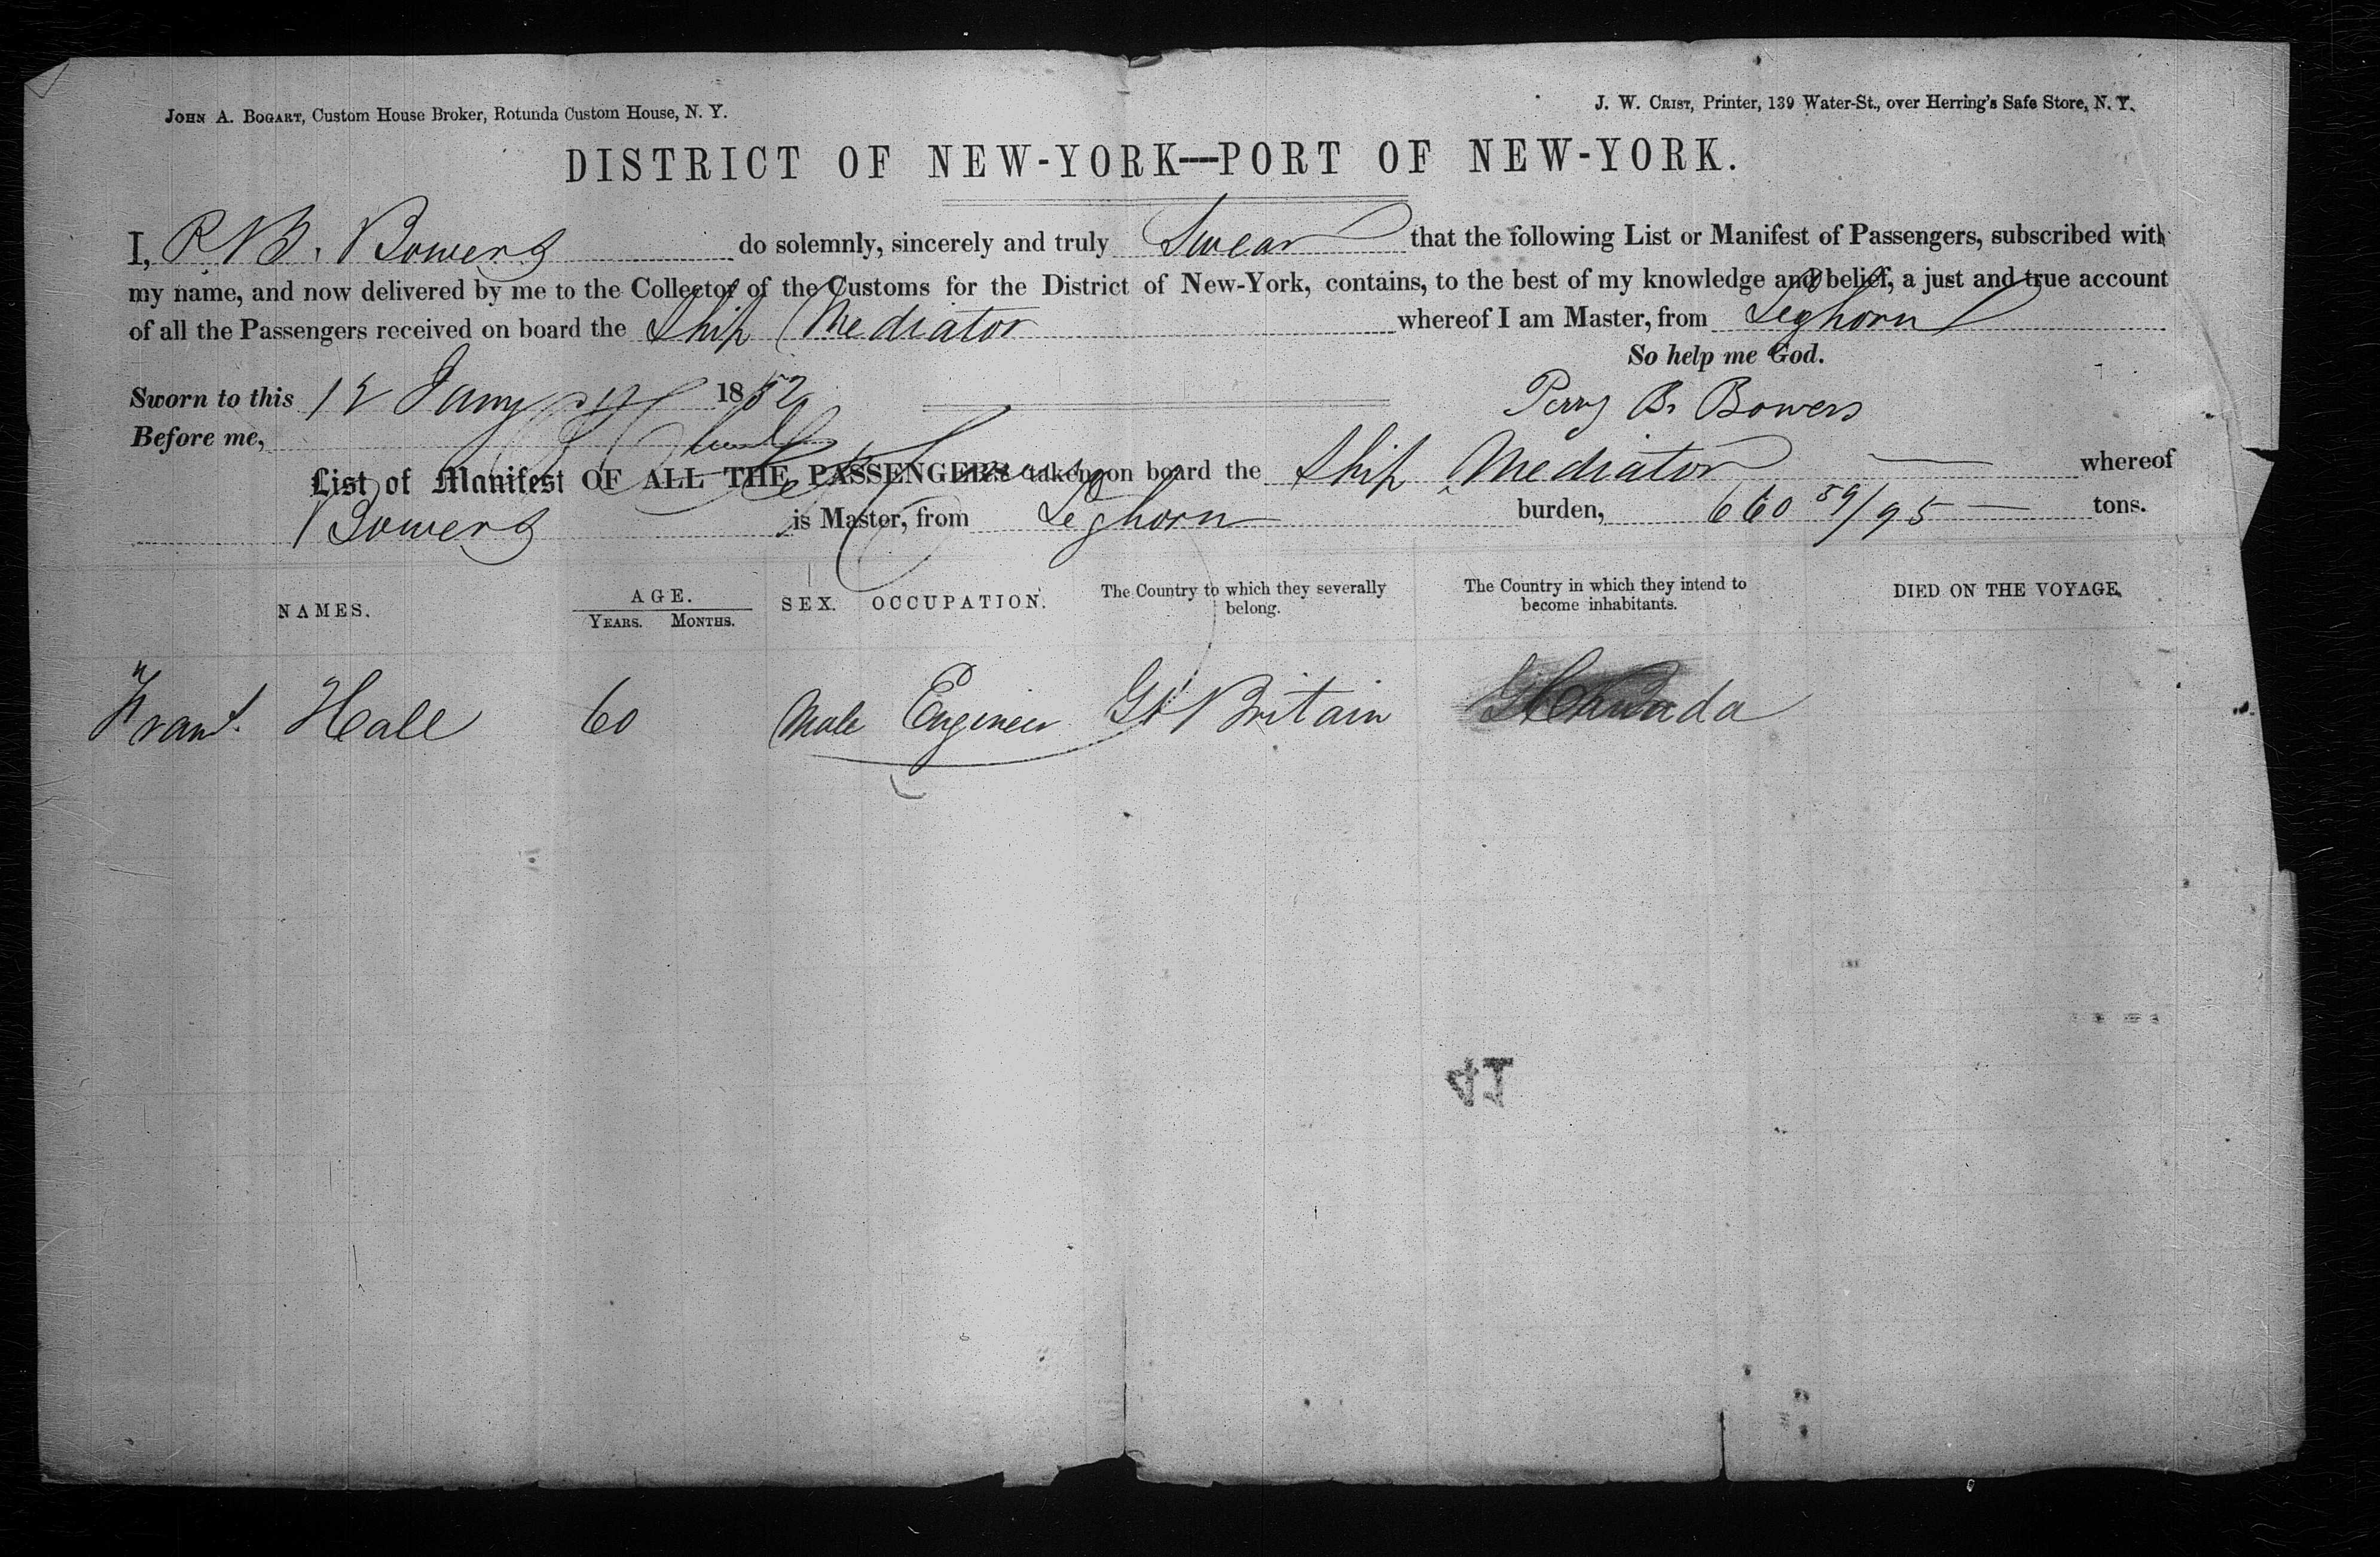 JOHN A. BOGART, Custom House Broker, Rotunda Custom House, N. Y.
J. W. CRIST, Printer, 139 Water-St., over Herring's Safe Store, N. Y.
DISTRICT OF NEW-YORK—PORT OF NEW-YORK.
I, P. B. Bowers do solemnly, sincerely and truly Swear that the following List or Manifest of Passengers, subscribed with
my name, and now delivered by me to the Collector of the Customs for the District of New-York, contains, to the best of my knowledge and belief, a just and true account
of all the Passengers received on board the Ship Mediator whereof I am Master, from Leghorn
So help me God.
Sworn to this 12 Jany 1852
Perry B. Bowers
Before me,
List of Manifest OF ALL THE PASSENGERS taken on board the Ship Mediator — whereof
Bowers is Master, from Leghorn burden, 660 59/95 — tons.
NAMES. AGE. YEARS. MONTHS. SEX. OCCUPATION. The Country to which they severally belong. The Country in which they intend to become inhabitants. DIED ON THE VOYAGE.
Hall 60 Male Engineer Gt Britain Canada